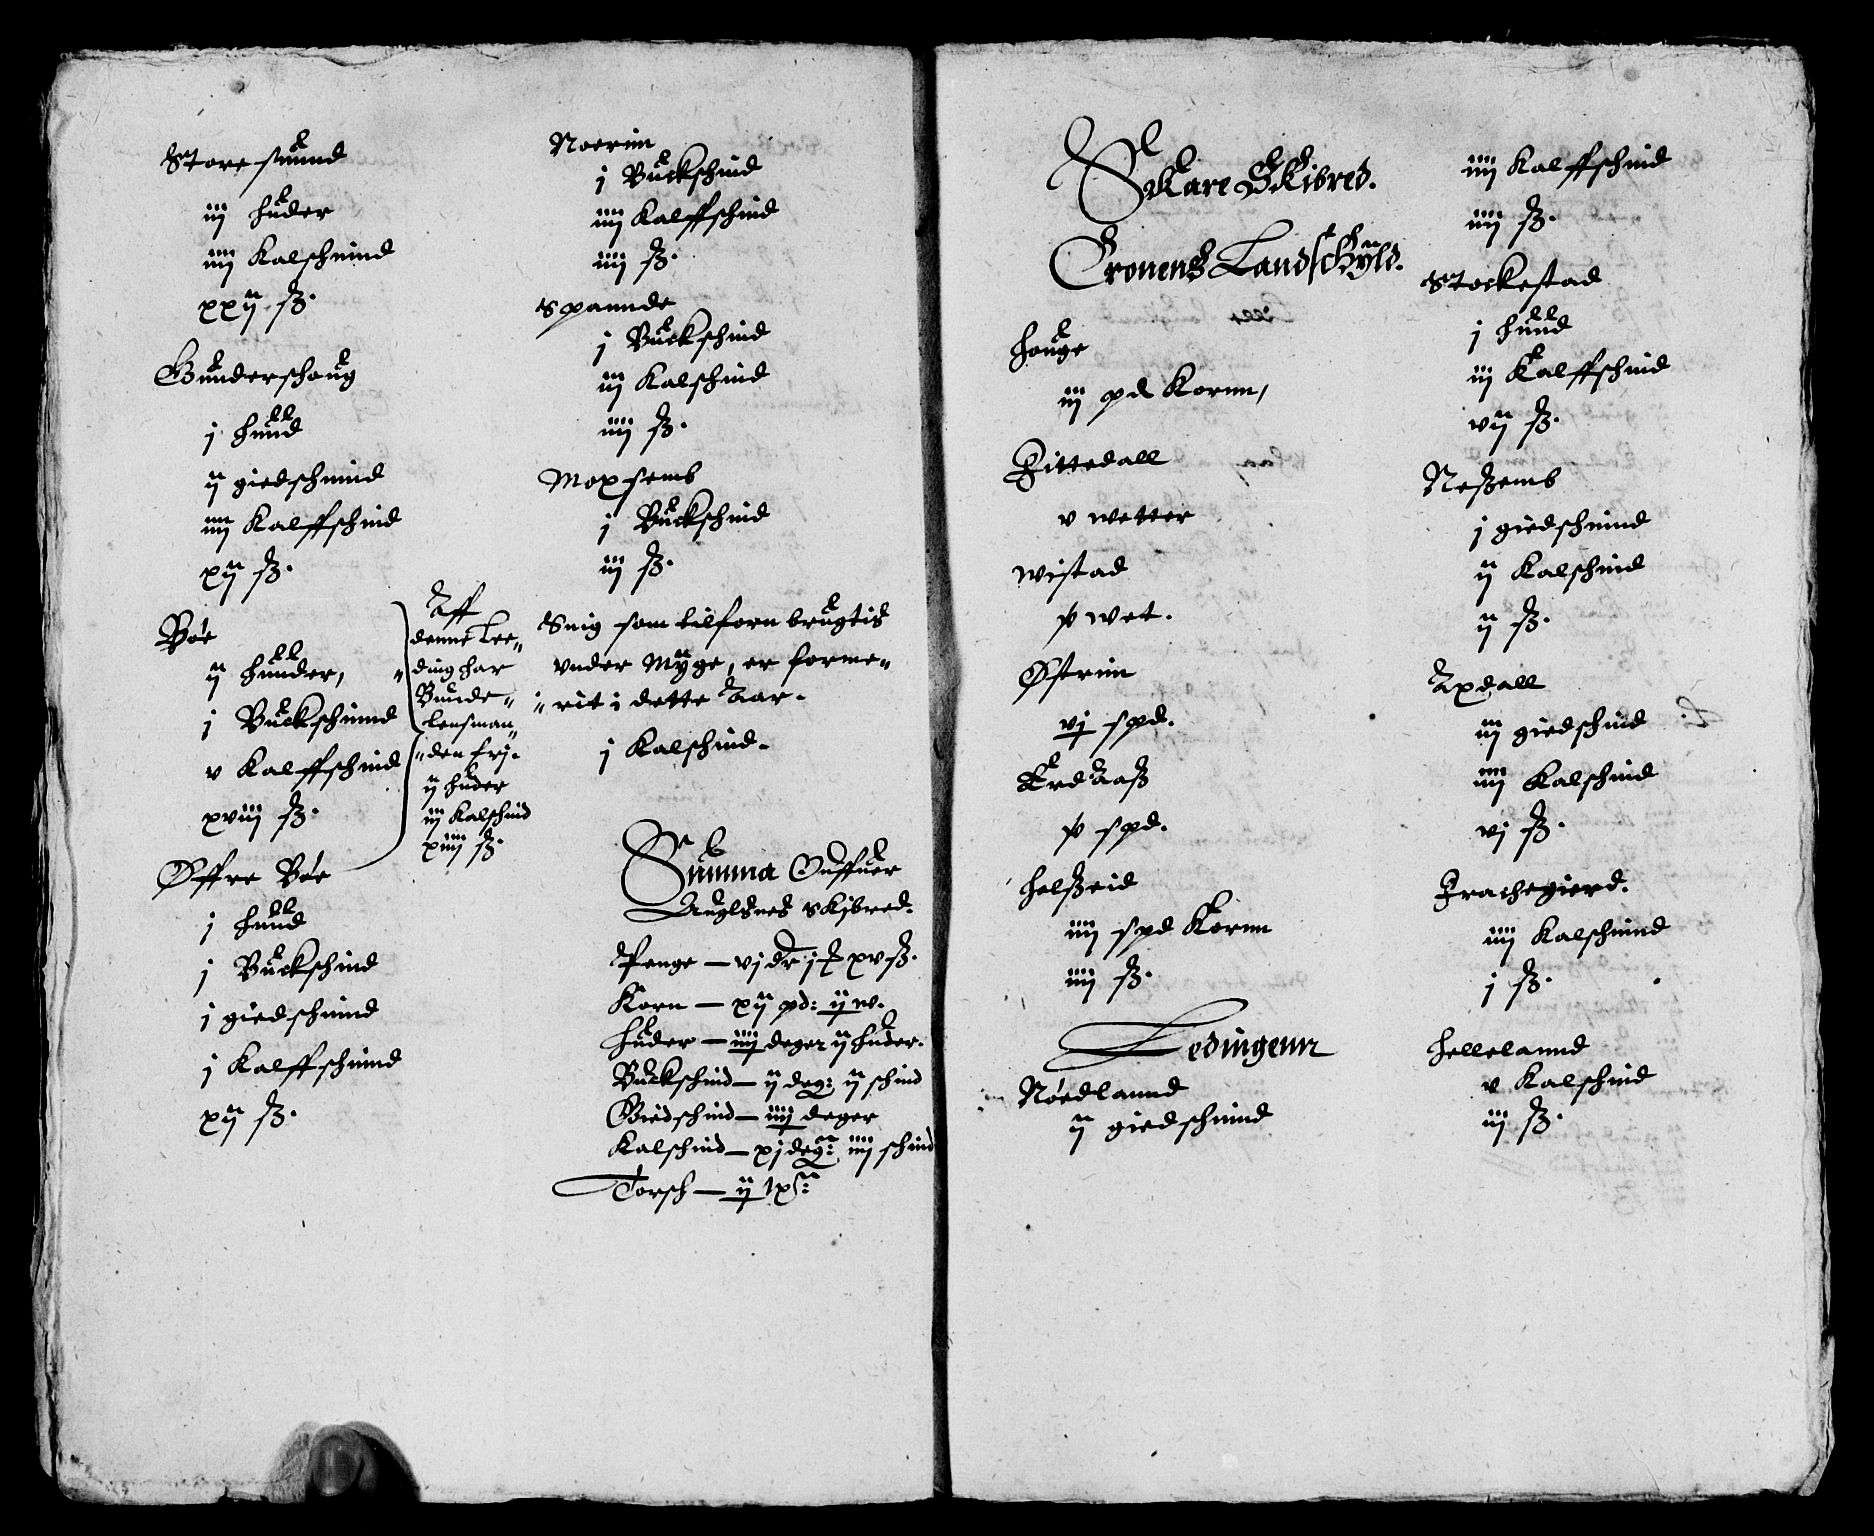 Store sund
iij huder
iiij Kalschind
xxij ß.
Gundershoug
j hud
ij giedschind
iiij Kalffschind
xij ß.
Bøe
ij huder,
j Buckschind
v Kalffschind
xviij ß.
Aff
denne Lee„
„ding har
Bunde„
lensman„
„den frj.
ij huder
iij Kalschind
xiiij ß.
Øffre Bøe
j hud
j Buckschind
j giedschind
j Kalffschind
xij ß.
Noerim
j Buckschind
iiij Kalffschind
iiij ß.
Spannde
j Buckschind
iij Kalschind
iiij ß.
Moxsemb
j Buckschind
iij ß.
Snig som tilforn brugtis
vnder Myge, er forme„
„rit i dette Aar.
j Kalschind.
Summa Ouffuer
Auglsnes Skibred.
Penge — vj dr j ƶ xv ß.
Korn — xij pd: ij w.
huder — iiij deger ij huder.
Buckschind — ij deg: ij schind
Giedschind — iiij deger
Kalschind — xj deg: iiij schind
Torsch — ij
Skare Skibred.
Cronens Landschyld.
houge
iij pd Kornn,
Fittedall
v wetter
Wistad
wet.
Østrim
vj spd.
Erdaaß
spd.
helßeid
iiij spd Kornn
iiij ß.
Ledingenn
Nøedlannd
ij giedschind
iiij Kalffschind
iiij ß.
Stockestad
j hud
iij Kalffschind
vij ß.
Neßemb
j giedschind
ij Kalschind
ij ß.
Axdall
iij giedschind
iiij Kalschind
vj ß.
Frachegierd.
iiij Kalschind
j ß.
hellelannd
v Kalschind
iij ß.